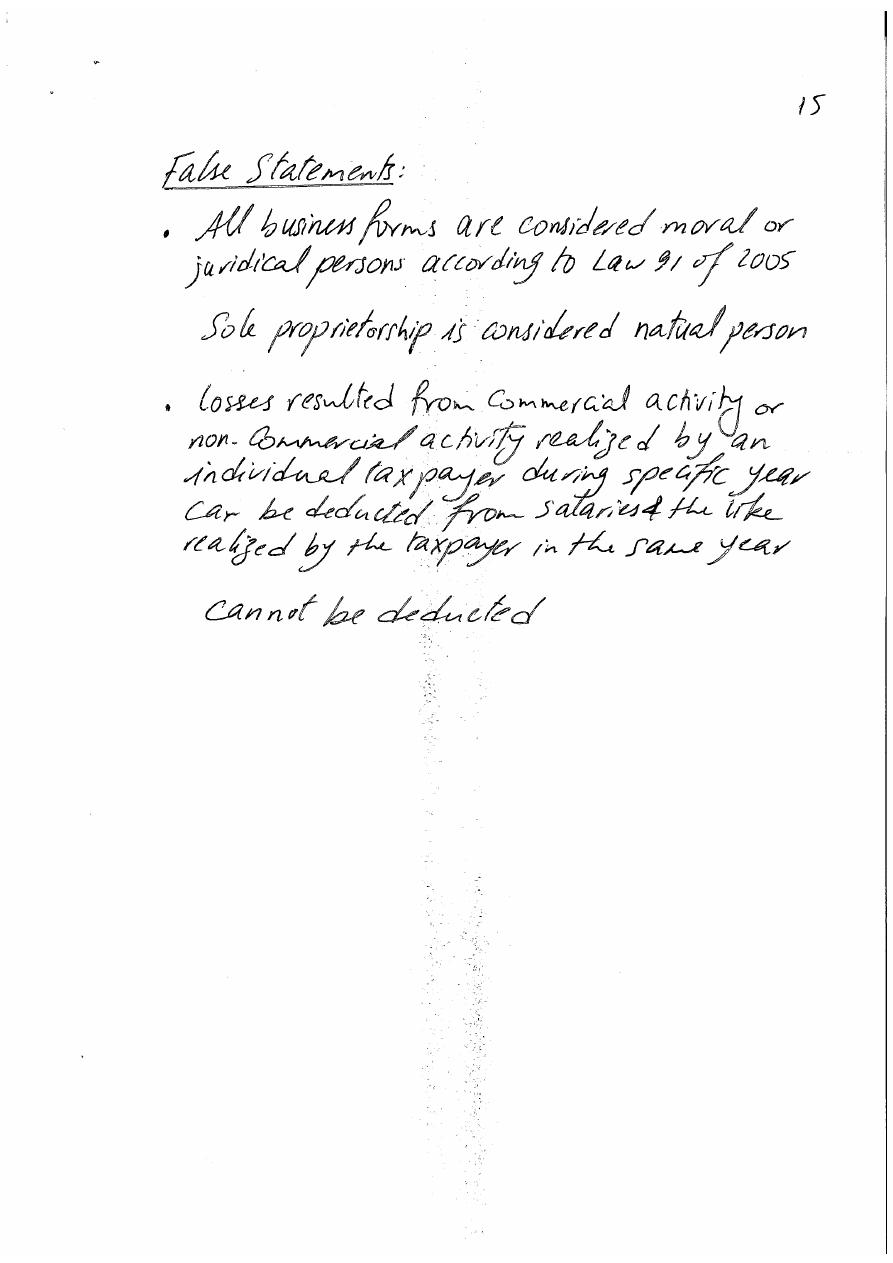 15
False Statements:
• All business forms are considered moral or
juridical persons according to Law 91 of 2005
Sole proprietorship is considered natual person
• Losses resulted from Commercial activity or
non-Commercial activity realized by an
individual taxpayer during specific year
can be deducted from salaries & the like
realized by the taxpayer in the same year
cannot be deducted